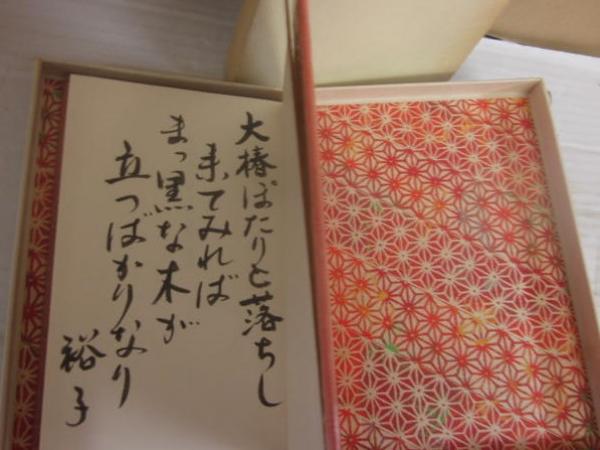 大椿ぽたりと落ちし
来てみれば
まっ黒な木が
立つばかりなり
裕子